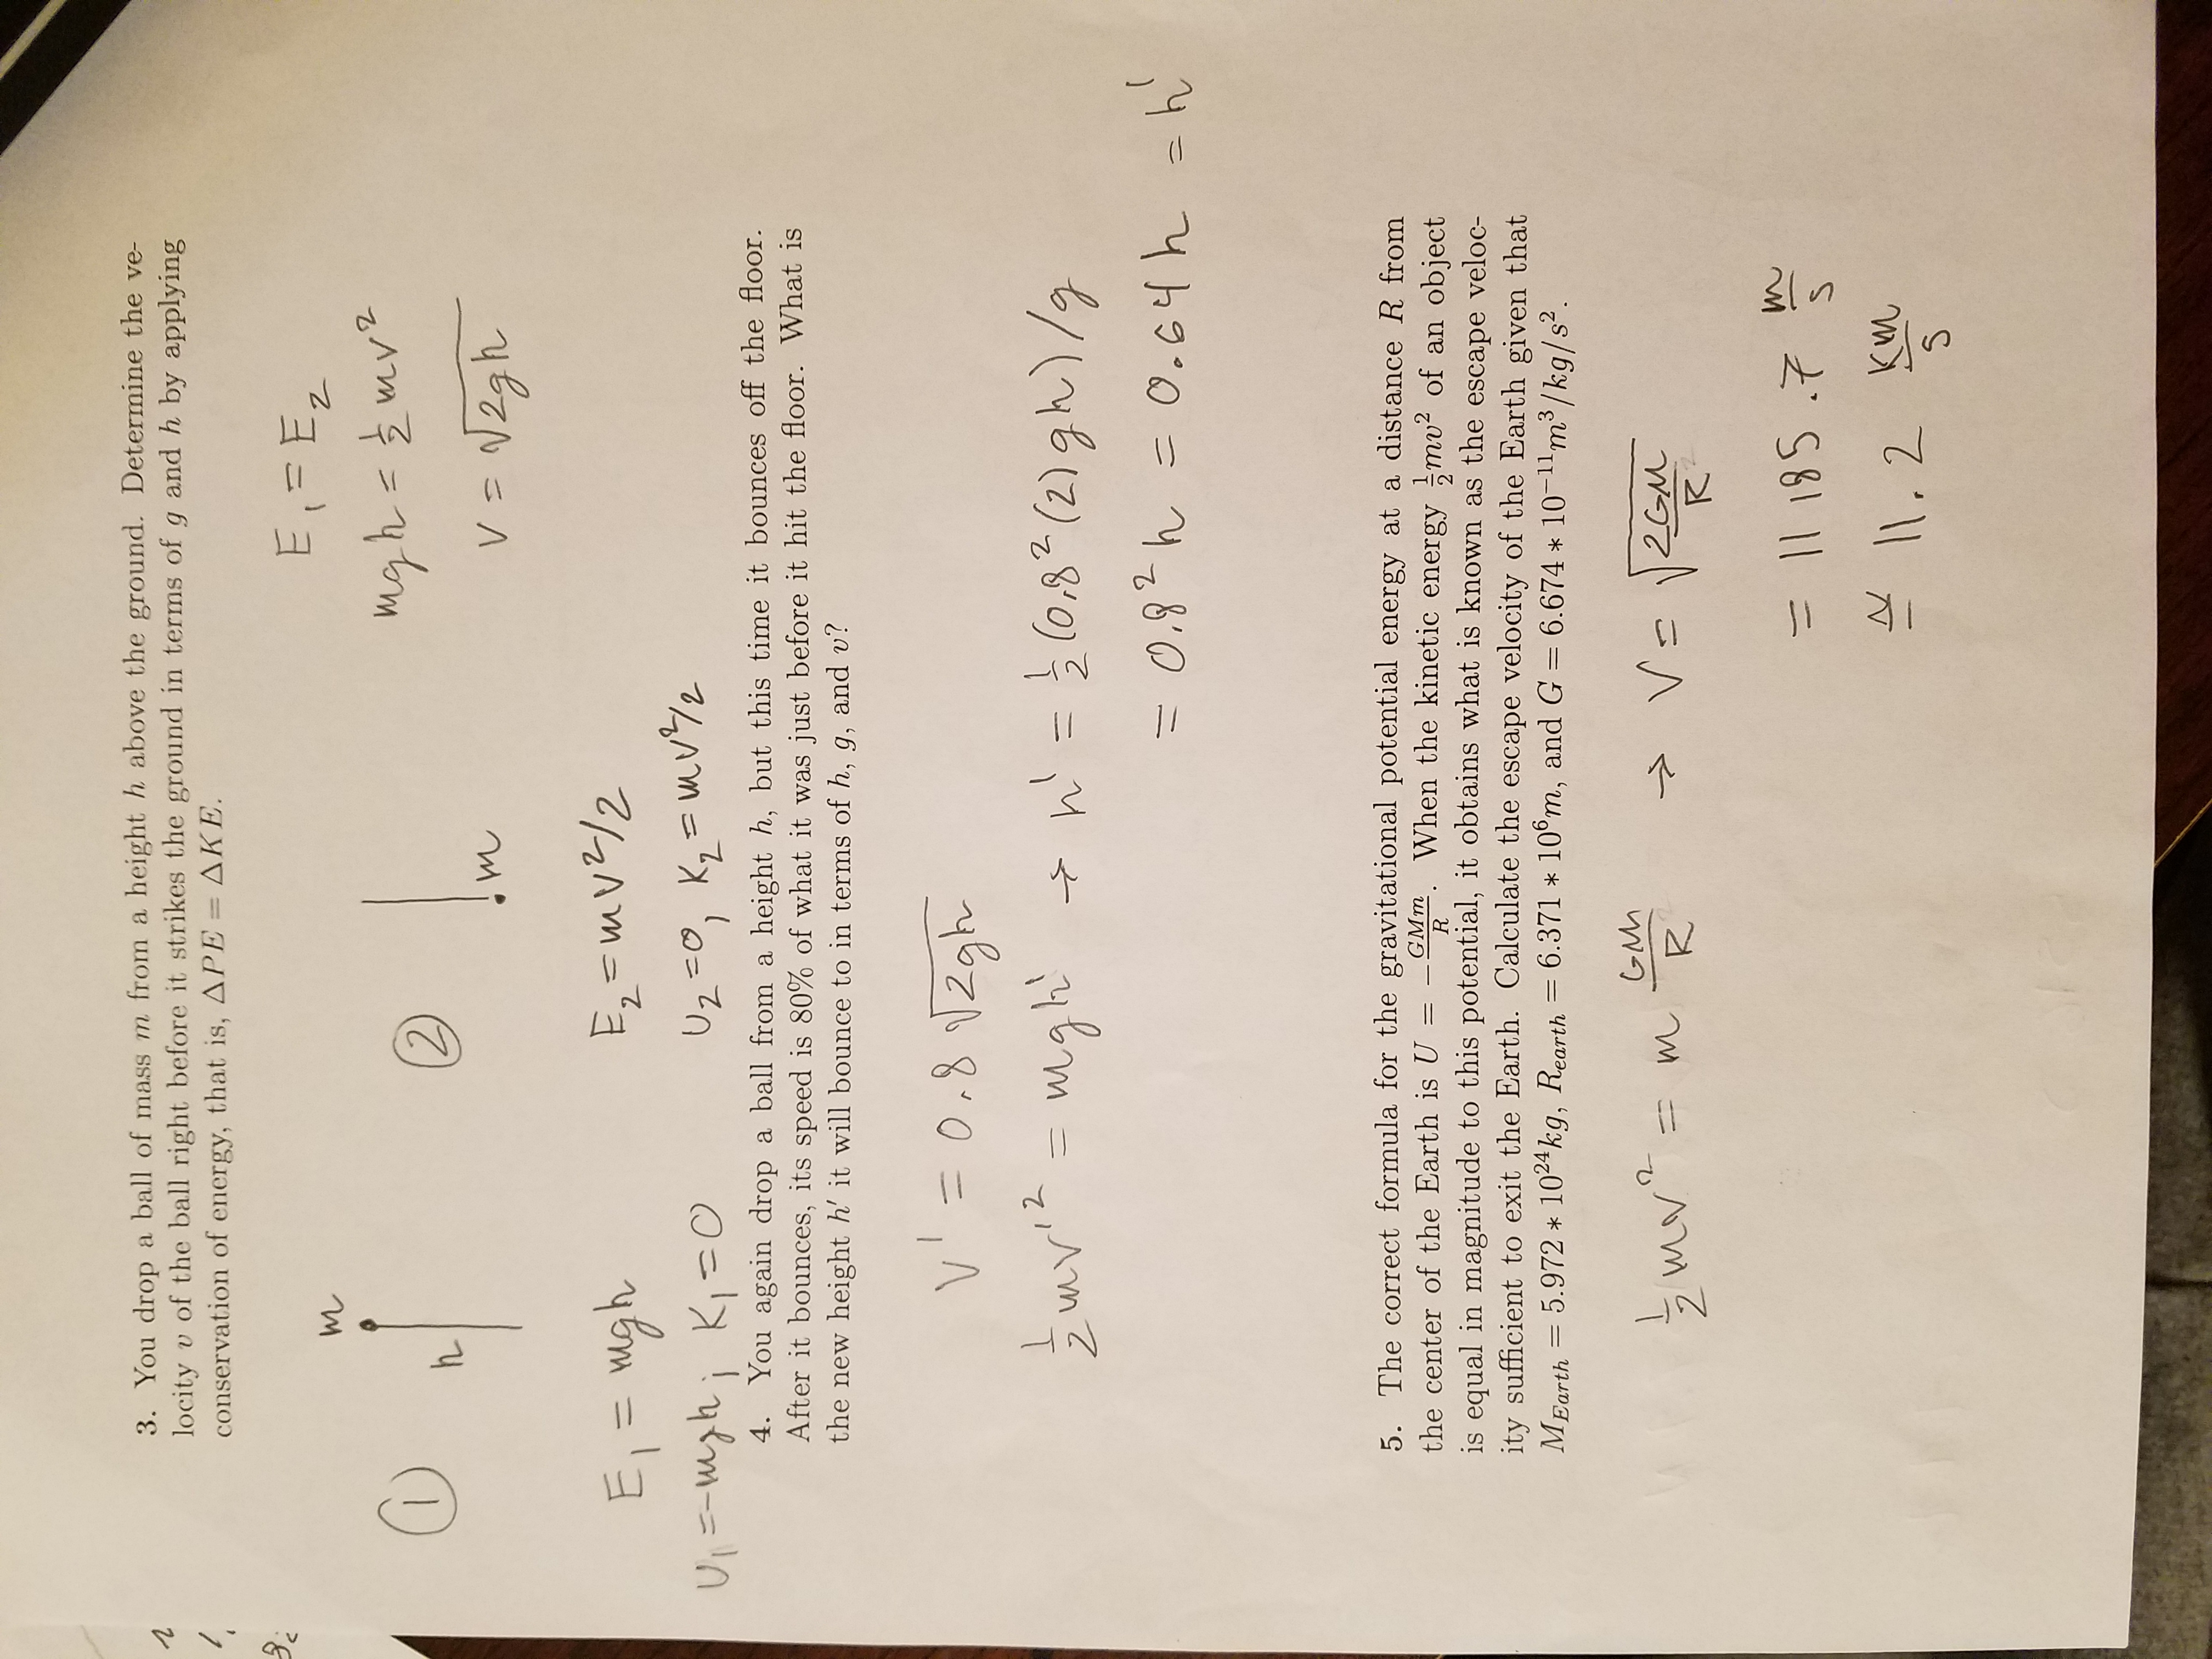 3. You drop a ball of mass m from a height h above the ground. Determine the ve-
locity v of the ball right before it strikes the ground in terms of g and h by applying
conservation of energy, that is, ΔPE = ΔKE.
E₁ = E₂
m
mgh = ½ mv²
① h
② m
v = √2gh
E₁ = mgh
E₂ = mv²/2
U₁ = -mgh; K₁ = 0
U₂ = 0, K₂ = mv²/2
4. You again drop a ball from a height h, but this time it bounces off the floor.
After it bounces, its speed is 80% of what it was just before it hit the floor. What is
the new height h′ it will bounce to in terms of h, g, and v?
v' = 0.8 √2gh
½ mv'² = mgh' → h' = ½ (0.8² (2) gh) / g
= 0.8² h = 0.64 h = h'
5. The correct formula for the gravitational potential energy at a distance R from
the center of the Earth is U = −GMm/R. When the kinetic energy ½mv² of an object
is equal in magnitude to this potential, it obtains what is known as the escape veloc-
ity sufficient to exit the Earth. Calculate the escape velocity of the Earth given that
M_Earth = 5.972 * 10²⁴kg, R_earth = 6.371 * 10⁶m, and G = 6.674 * 10⁻¹¹m³/kg/s².
½ mv² = m GM/R → V = √2GM/R
= 11185.7 m/s
≅ 11.2 km/s